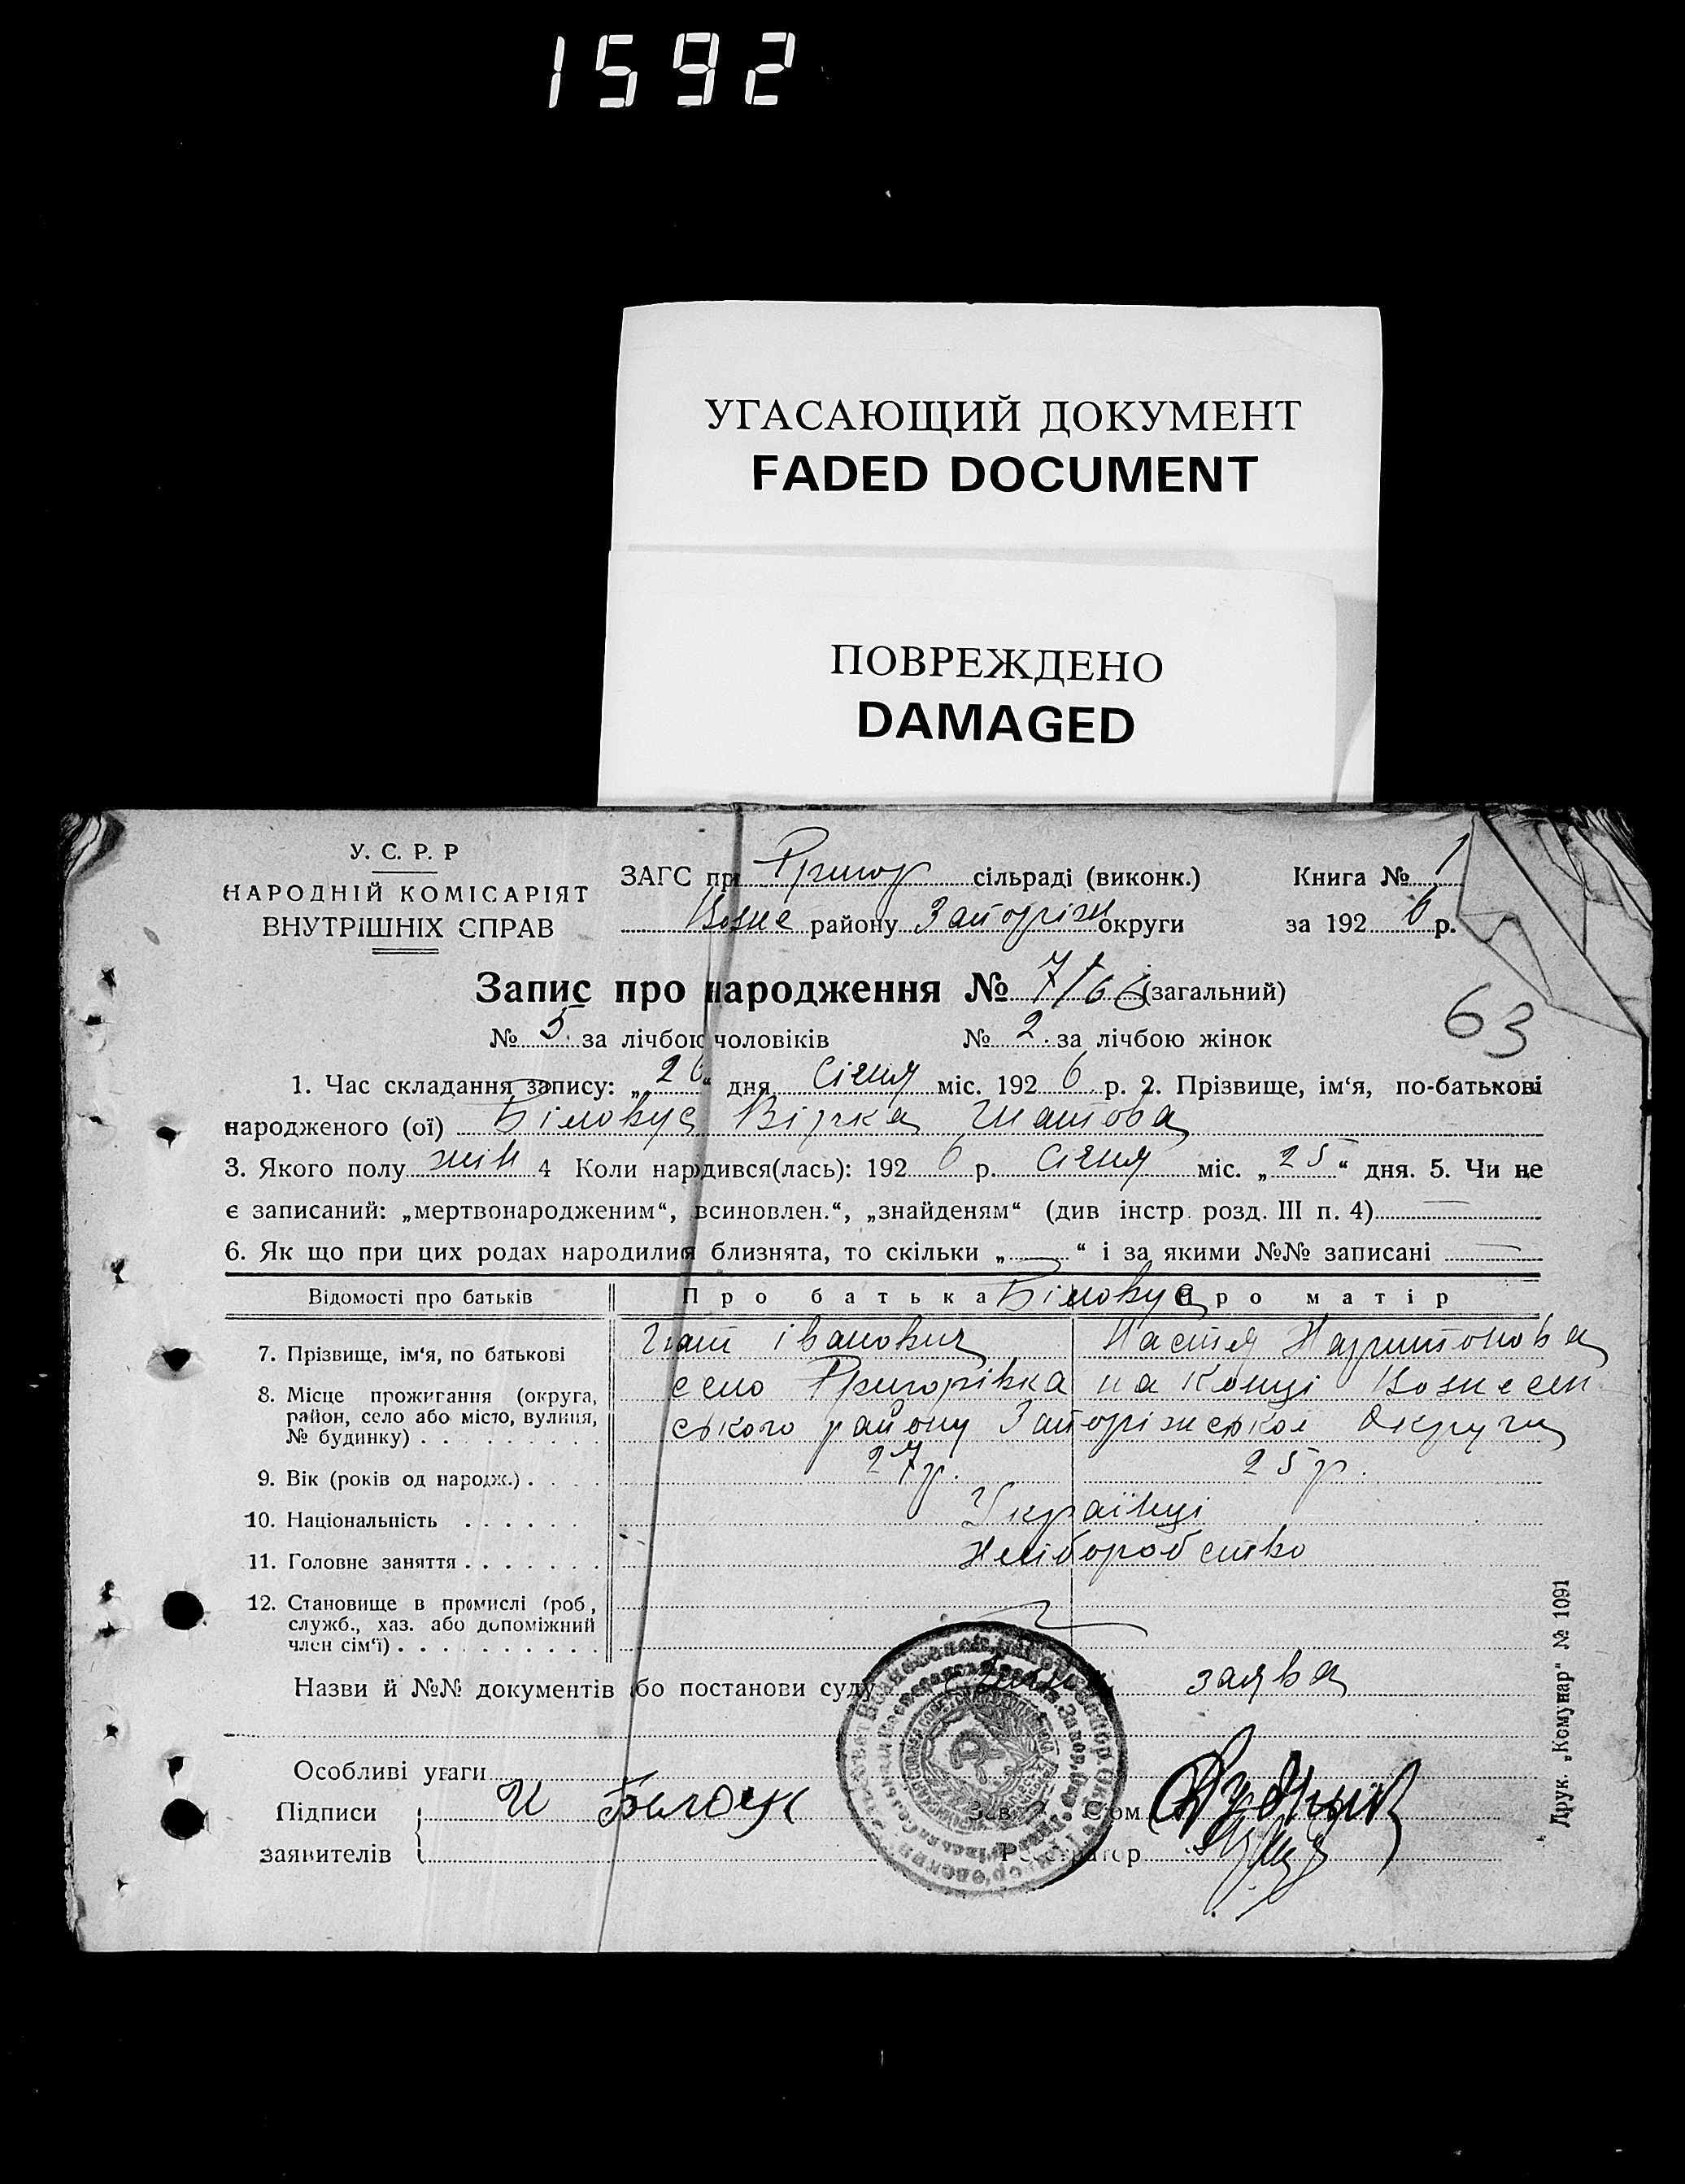 1592
УГАСАЮЩИЙ ДОКУМЕНТ
FADED DOCUMENT
ПОВРЕЖДЕНО
DAMAGED
У. С. Р. Р
НАРОДНІЙ КОМІСАРІЯТ
ВНУТРІШНІХ СПРАВ
ЗАГС при Григор сільраді (виконк.) Книга № 1
Возне району Запоріж округи за 192 6 р.
Запис про народження № 7/66 (загальний)
63
№ 5. за лічбою чоловіків № 2. за лічбою жінок
1. Час складання запису: „ 26 “ дня Січня міс. 192 6 р. 2. Прізвище, ім‘я, по-батькові
народженого (ої) Біловус Вірка
3. Якого полу жін 4 Коли народився(лась): 192 6 р. Січня міс. „ 25 “ дня. 5. Чи не
є записаний: „мертвонародженим“, „всиновлен.“, „знайденям“ (див інстр. розд. III п. 4)
6. Як що при цих родах народилися близнята, то скільки „ “ і за якими №№ записані
Відомості про батьків Про батька Біловус Про матір
7. Прізвище, ім‘я, по батькові Іванович Настя Харитонова
8. Місце прожигання (округа, село Григорівка на Конці Вознесен
район, село або місто, вулиця, ського району Запоріжської Округи
№ будинку)
9. Вік (років од народж.) 27 р. 25 р.
10. Національність Українці
11. Головне заняття Хліборобство
12. Становище в промислі (роб,
служб., хаз. або допоміжний
член сім‘ї)
Назви й №№ документів або постанови суду заява
Особливі уваги
Підписи
заявителів И
Зав Регистратор
Друк. „Комунар“ № 1091